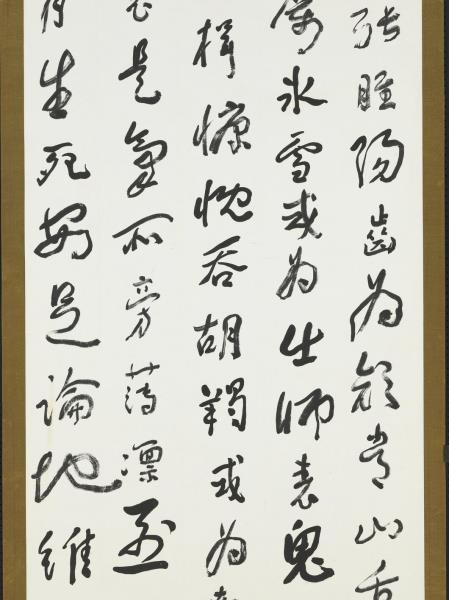 張睢陽齒為顏常山舌
厲冰雪或為出師表鬼
楫慷慨吞胡羯或為
是氣所旁薄凛烈
月生死安足論地維